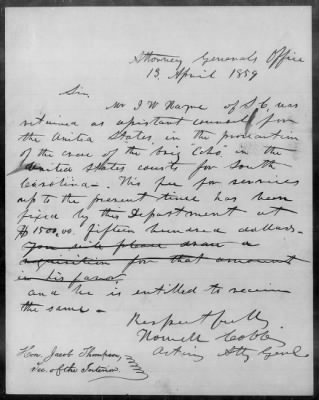 Attorney Generals Office
13 April 1859
Sir,
Mr I W Hayne of S.C. was
retained as assistant counsel for
the United States in the prosecution
of the case of the brig "Echo" in the
United States courts for South
Carolina—. His fee for services
up to the present time has been
fixed by this Department at
$1500.00. fifteen hundred dollars.
You will please draw a
requisition for that amount
in his favor
and he is entitled to receive
the same —
Respectfully
Howell Cobb
Acting Atty Genl.
Hon. Jacob Thompson,
Sec. of the Interior.